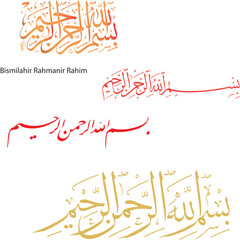 بسم الله الرحمن الرحيم
Bismilahir Rahmanir Rahim
بسم الله الرحمن الرحيم
بسم الله الرحمن الرحيم
بِسْمِ اللَّهِ الرَّحْمَنِ الرَّحِيمِ